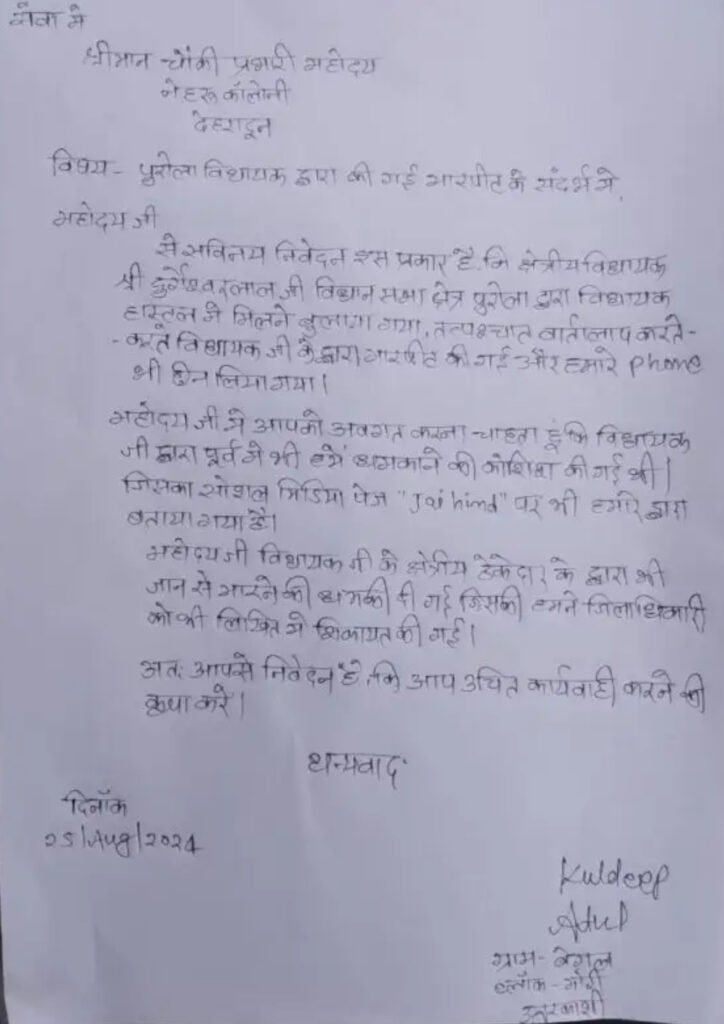 सेवा मे
श्रीमान चौकी प्रभारी महोदय
नेहरू कॉलोनी
देहरादून
विषय - पुरोला विधायक द्वारा की गई मारपीट के संदर्भ मे,
महोदय जी
से सविनय निवेदन इस प्रकार है कि क्षेत्रीय विधायक
श्री दुर्गेश्वरलाल जी विधान सभा क्षेत्र पुरोला द्वारा विधायक
हास्टल मे मिलने बुलाया गया, तत्पश्चात वार्तालाप करते-
-करते विधायक जी के द्वारा मारपीट की गई और हमारे phone
भी छिन लिया गया।
महोदय जी मे आपको अवगत करना चाहता हूं कि विधायक
जी द्वारा पूर्व मे भी हमे धमकाने की कोशिश की गई थी।
जिसका सोशल मिडिया पेज "Jai hind" पर भी हमारे द्वारा
बताया गया है।
महोदय जी विधायक जी के क्षेत्रीय ठेकेदार के द्वारा भी
जान से मारने की धमकी दी गई जिसकी हमने जिलाधिकारी
को भी लिखित मे शिकायत की गई।
अतः आपसे निवेदन है कि आप उचित कार्यवाही करने की
कृपा करे।
धन्यवाद
दिनॉक
25/Aug/2024
Kuldeep
Atul
ग्राम -
ब्लॉक - मोरी
उत्तरकाशी